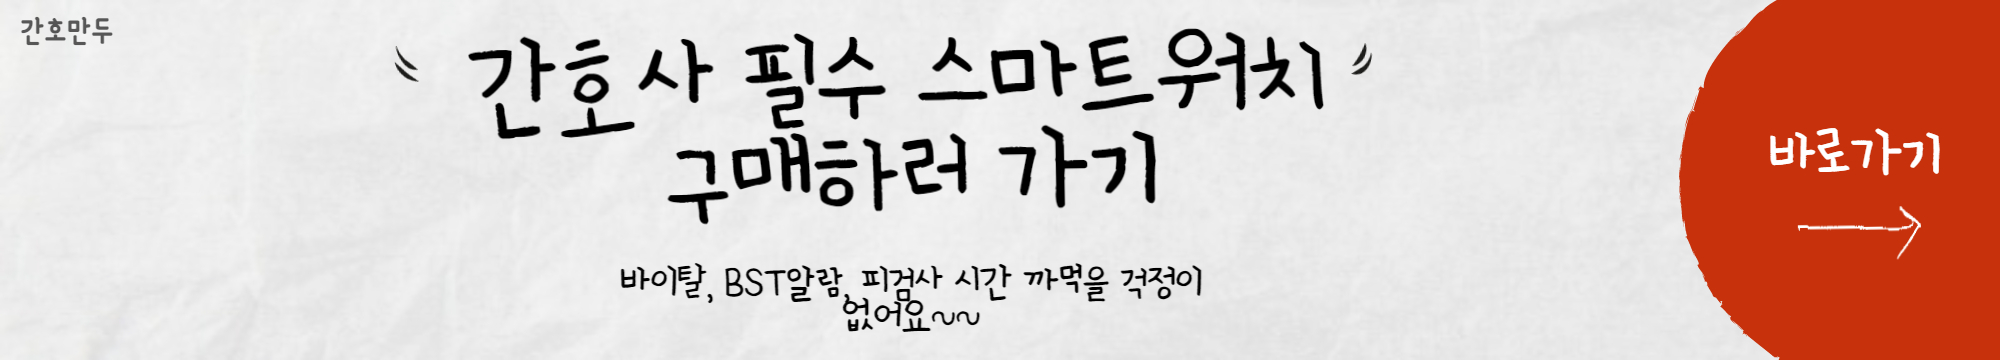 간호만두
간호사 필수 스마트워치
구매하러 가기
바이탈, BST알람, 피검사 시간 까먹을 걱정이
없어요~~
바로가기